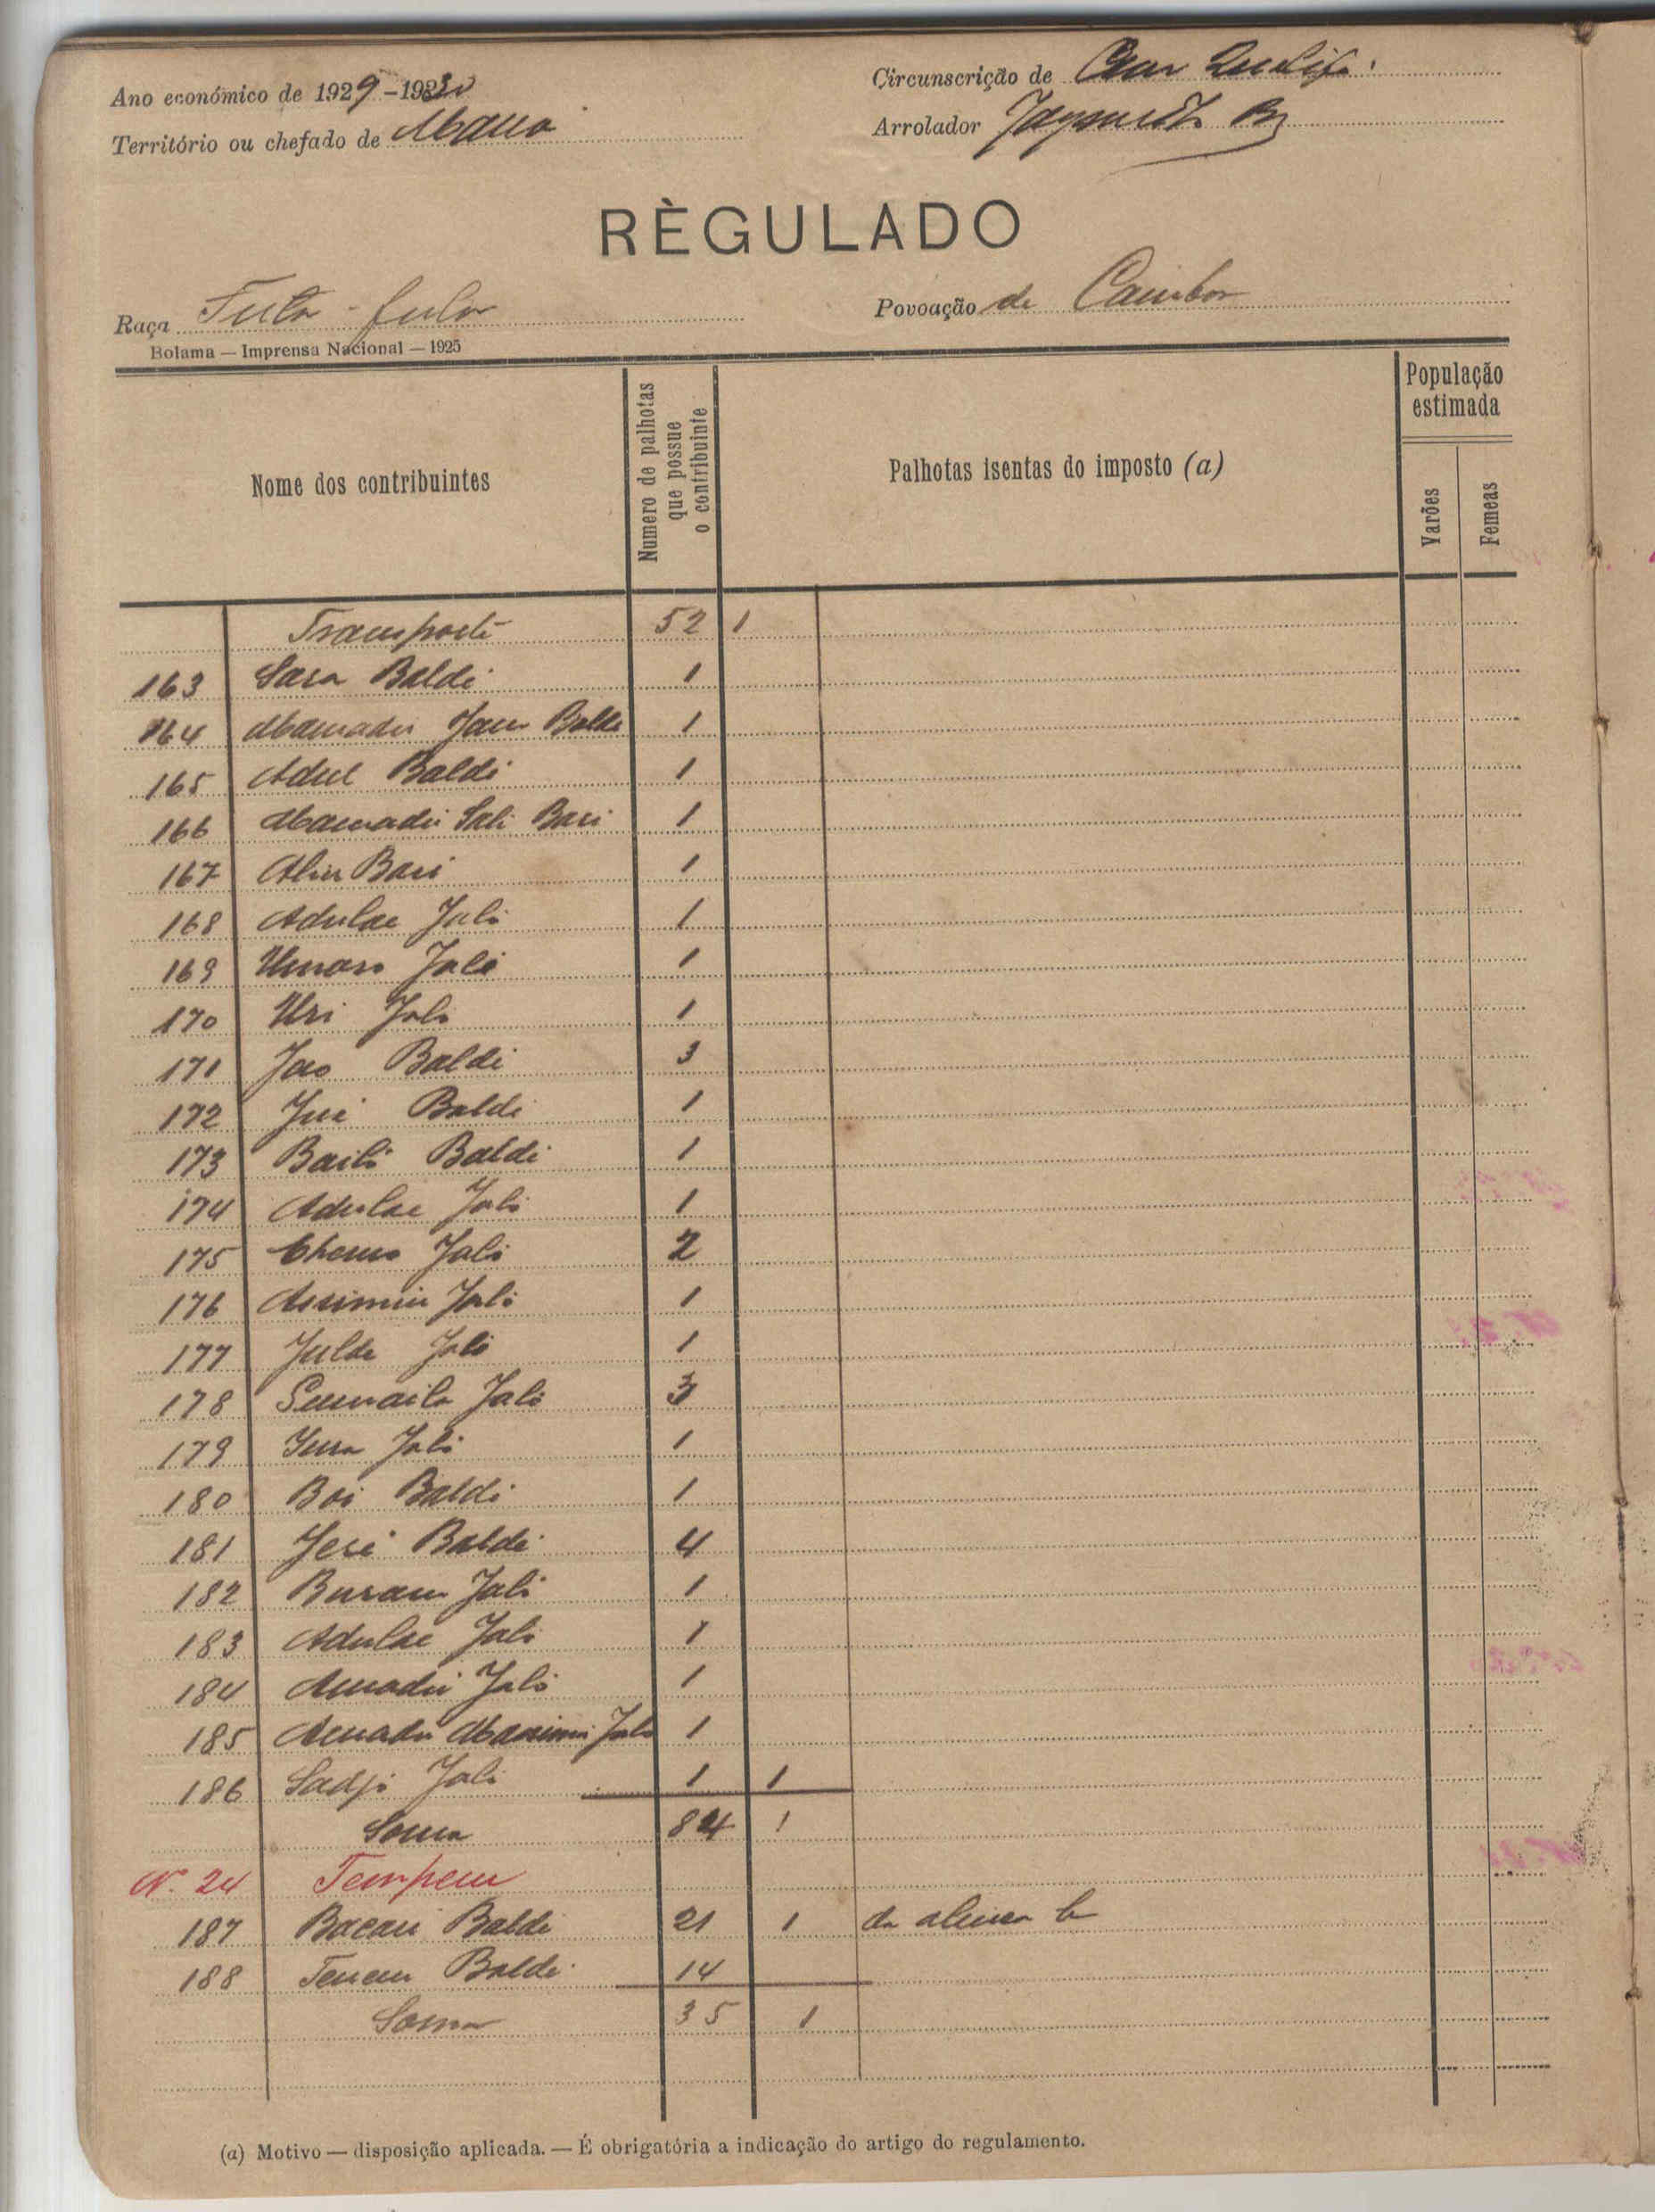 Ano económico de 1929-1930
Circunscrição de
Território ou chefado de
Arrolador
RÈGULADO
Raça Futa-fula
Povoação de Caimbor
Bolama — Imprensa Nacional — 1925
Nome dos contribuintes
Numero de palhotas que possue o contribuinte
Palhotas isentas do imposto (a)
População estimada
Varões
Femeas
Transporte 52 1
163 Sara Baldé 1
164 Mamadu Baldé 1
165 Adul Baldé 1
166 Mamadú Sali Bari 1
167 Aliu Bari 1
168 Adulae Jaló 1
169 Umaro Jaló 1
170 Uri Jaló 1
171 Jao Baldé 3
172 Baldé 1
173 Bailó Baldé 1
174 Adulae Jaló 1
175 Cherno Jaló 2
176 Jaló 1
177 Julde Jaló 1
178 Sumaila Jaló 3
179 Jaló 1
180 Boi Baldé 1
181 Baldé 4
182 Buram Jaló 1
183 Adulae Jaló 1
184 Amadú Jaló 1
185 Amadu Jaló 1
186 Sadjo Jaló 1 1
Soma 84 1
N.º 24 Tempem
187 Bacari Baldé 21 1 da alinea b
188 Baldé 14
Soma 35 1
(a) Motivo — disposição aplicada. — É obrigatória a indicação do artigo do regulamento.